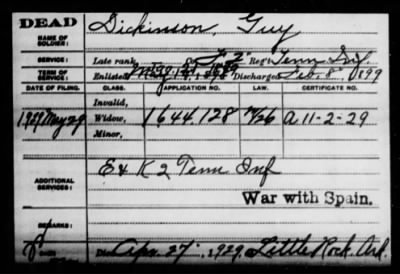 DEAD
NAME OF SOLDIER: Dickinson, Guy
SERVICE: Late rank, Co. 2" Reg't Tenn Inf.
TERM OF SERVICE: Enlisted 1898 Discharged Feb. 8", 1899
DATE OF FILING. CLASS. APPLICATION NO. LAW. CERTIFICATE NO.
Invalid,
1929 May 29 Widow, 1644,128 A 11-2-29
Minor,
ADDITIONAL SERVICES: E & K 2 Tenn Inf
War with Spain.
REMARKS:
Died Apr. 27", 1929, Little Rock Ark.